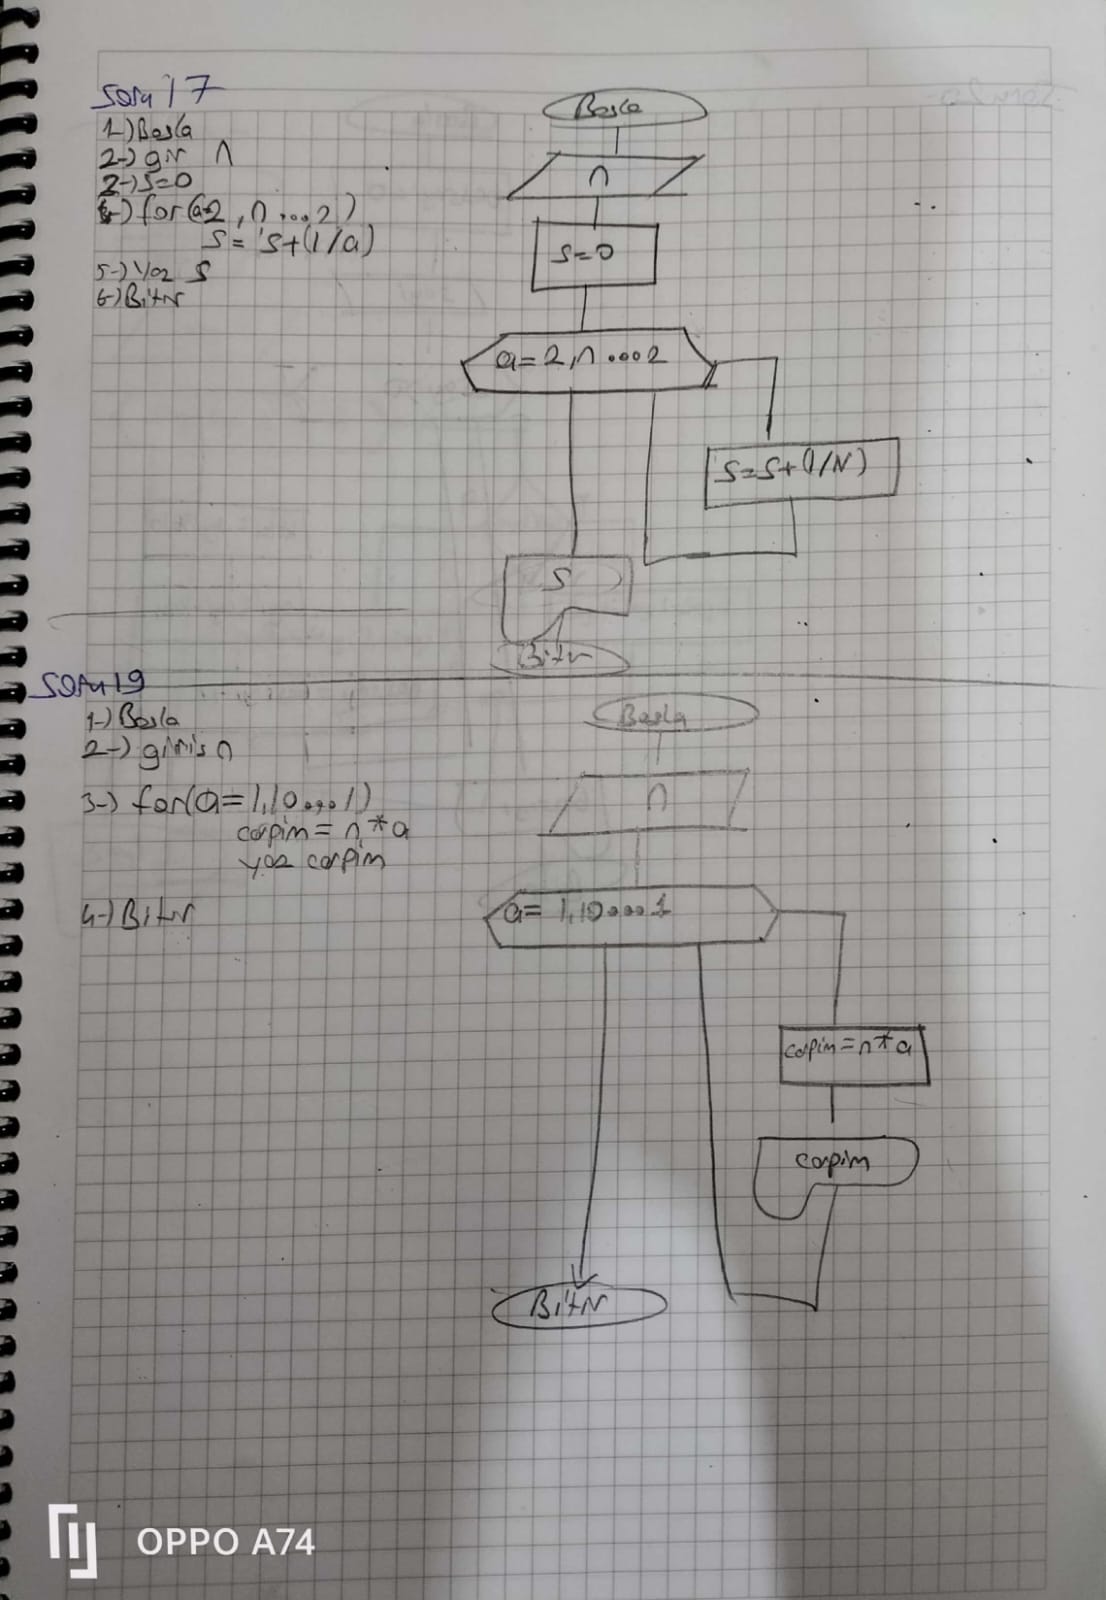 Soru 17
1-) Başla
2-) gir n
3-) S=0
4-) for(a=2,n...2)
S= S+(1/a)
5-) Yaz S
6-) Bitir
Başla
n
S=0
a=2,n...2
S=S+(1/N)
S
Bitir
Soru 19
1-) Başla
2-) giriş n
3-) for(a=1,10...1)
carpim= n*a
yaz carpim
4-) Bitir
Başla
n
a= 1,10...1
carpim=n*a
carpim
Bitir
OPPO A74